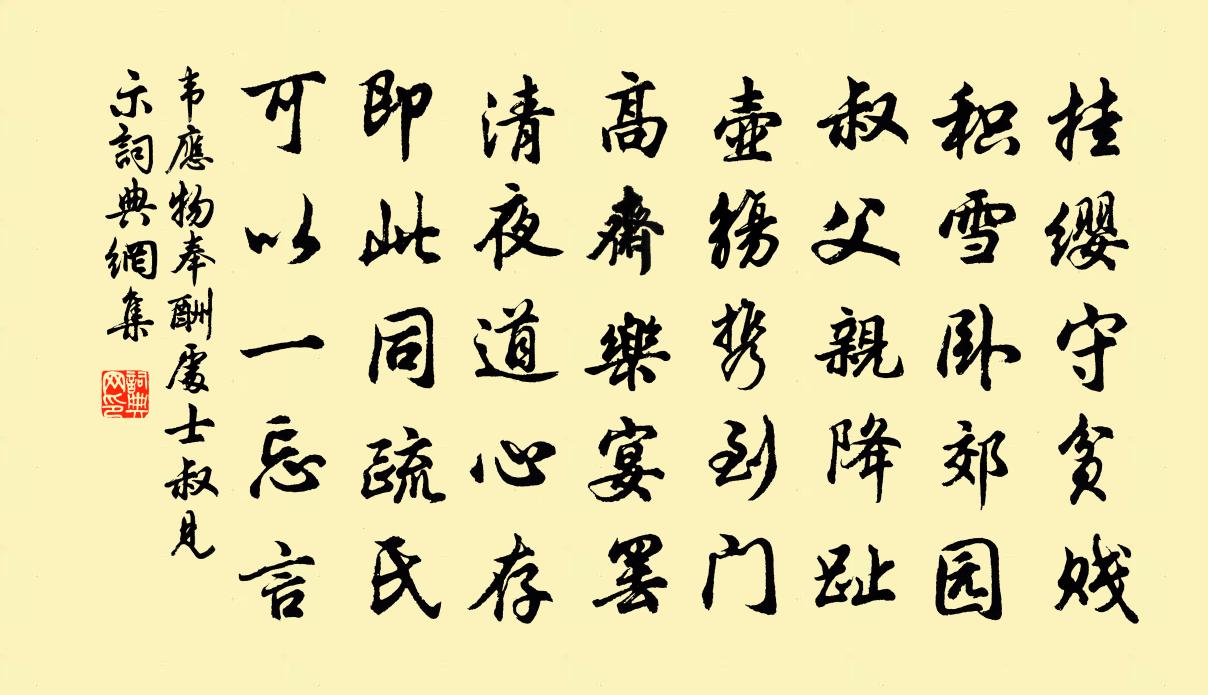 挂缨守贫贱
积雪卧郊园
叔父親降趾
壶觞携到门
高齋樂宴罢
清夜道心存
即此同疏氏
可以一忘言
韦應物奉酬處士叔見
示詞典網集
詞典
网印